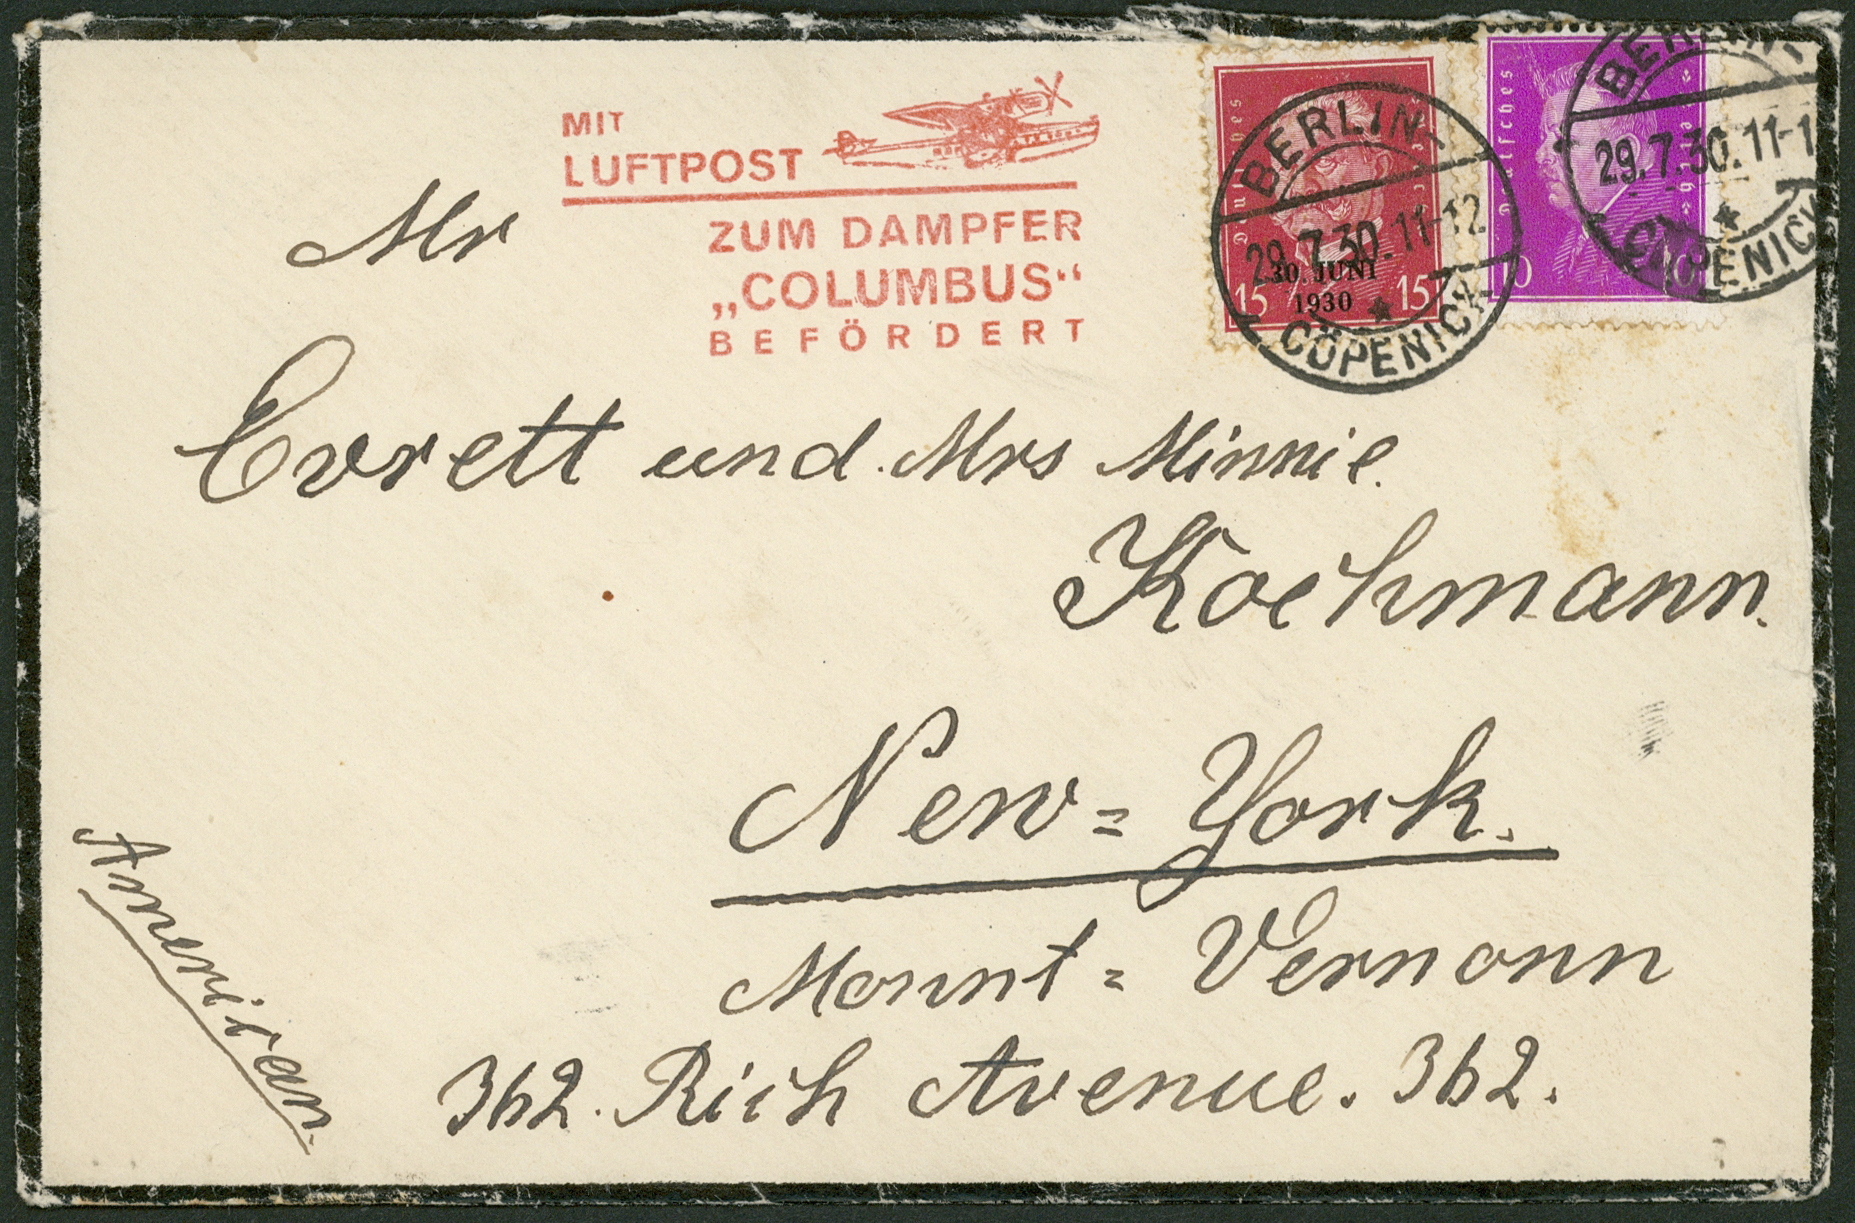 MIT
LUFTPOST
ZUM DAMPFER
„COLUMBUS“
BEFÖRDERT
Deutsches Reich
30. JUNI
1930
15 15
BERLIN-
29.7.30. 11-12
CÖPENICK
BERLIN-
29.7.30. 11-1
CÖPENICK
Mr
Evrett und Mrs Minnie.
Kochmann.
New=York.
Mount=Vernonn
362. Rich Avenue. 362.
Amerikan.